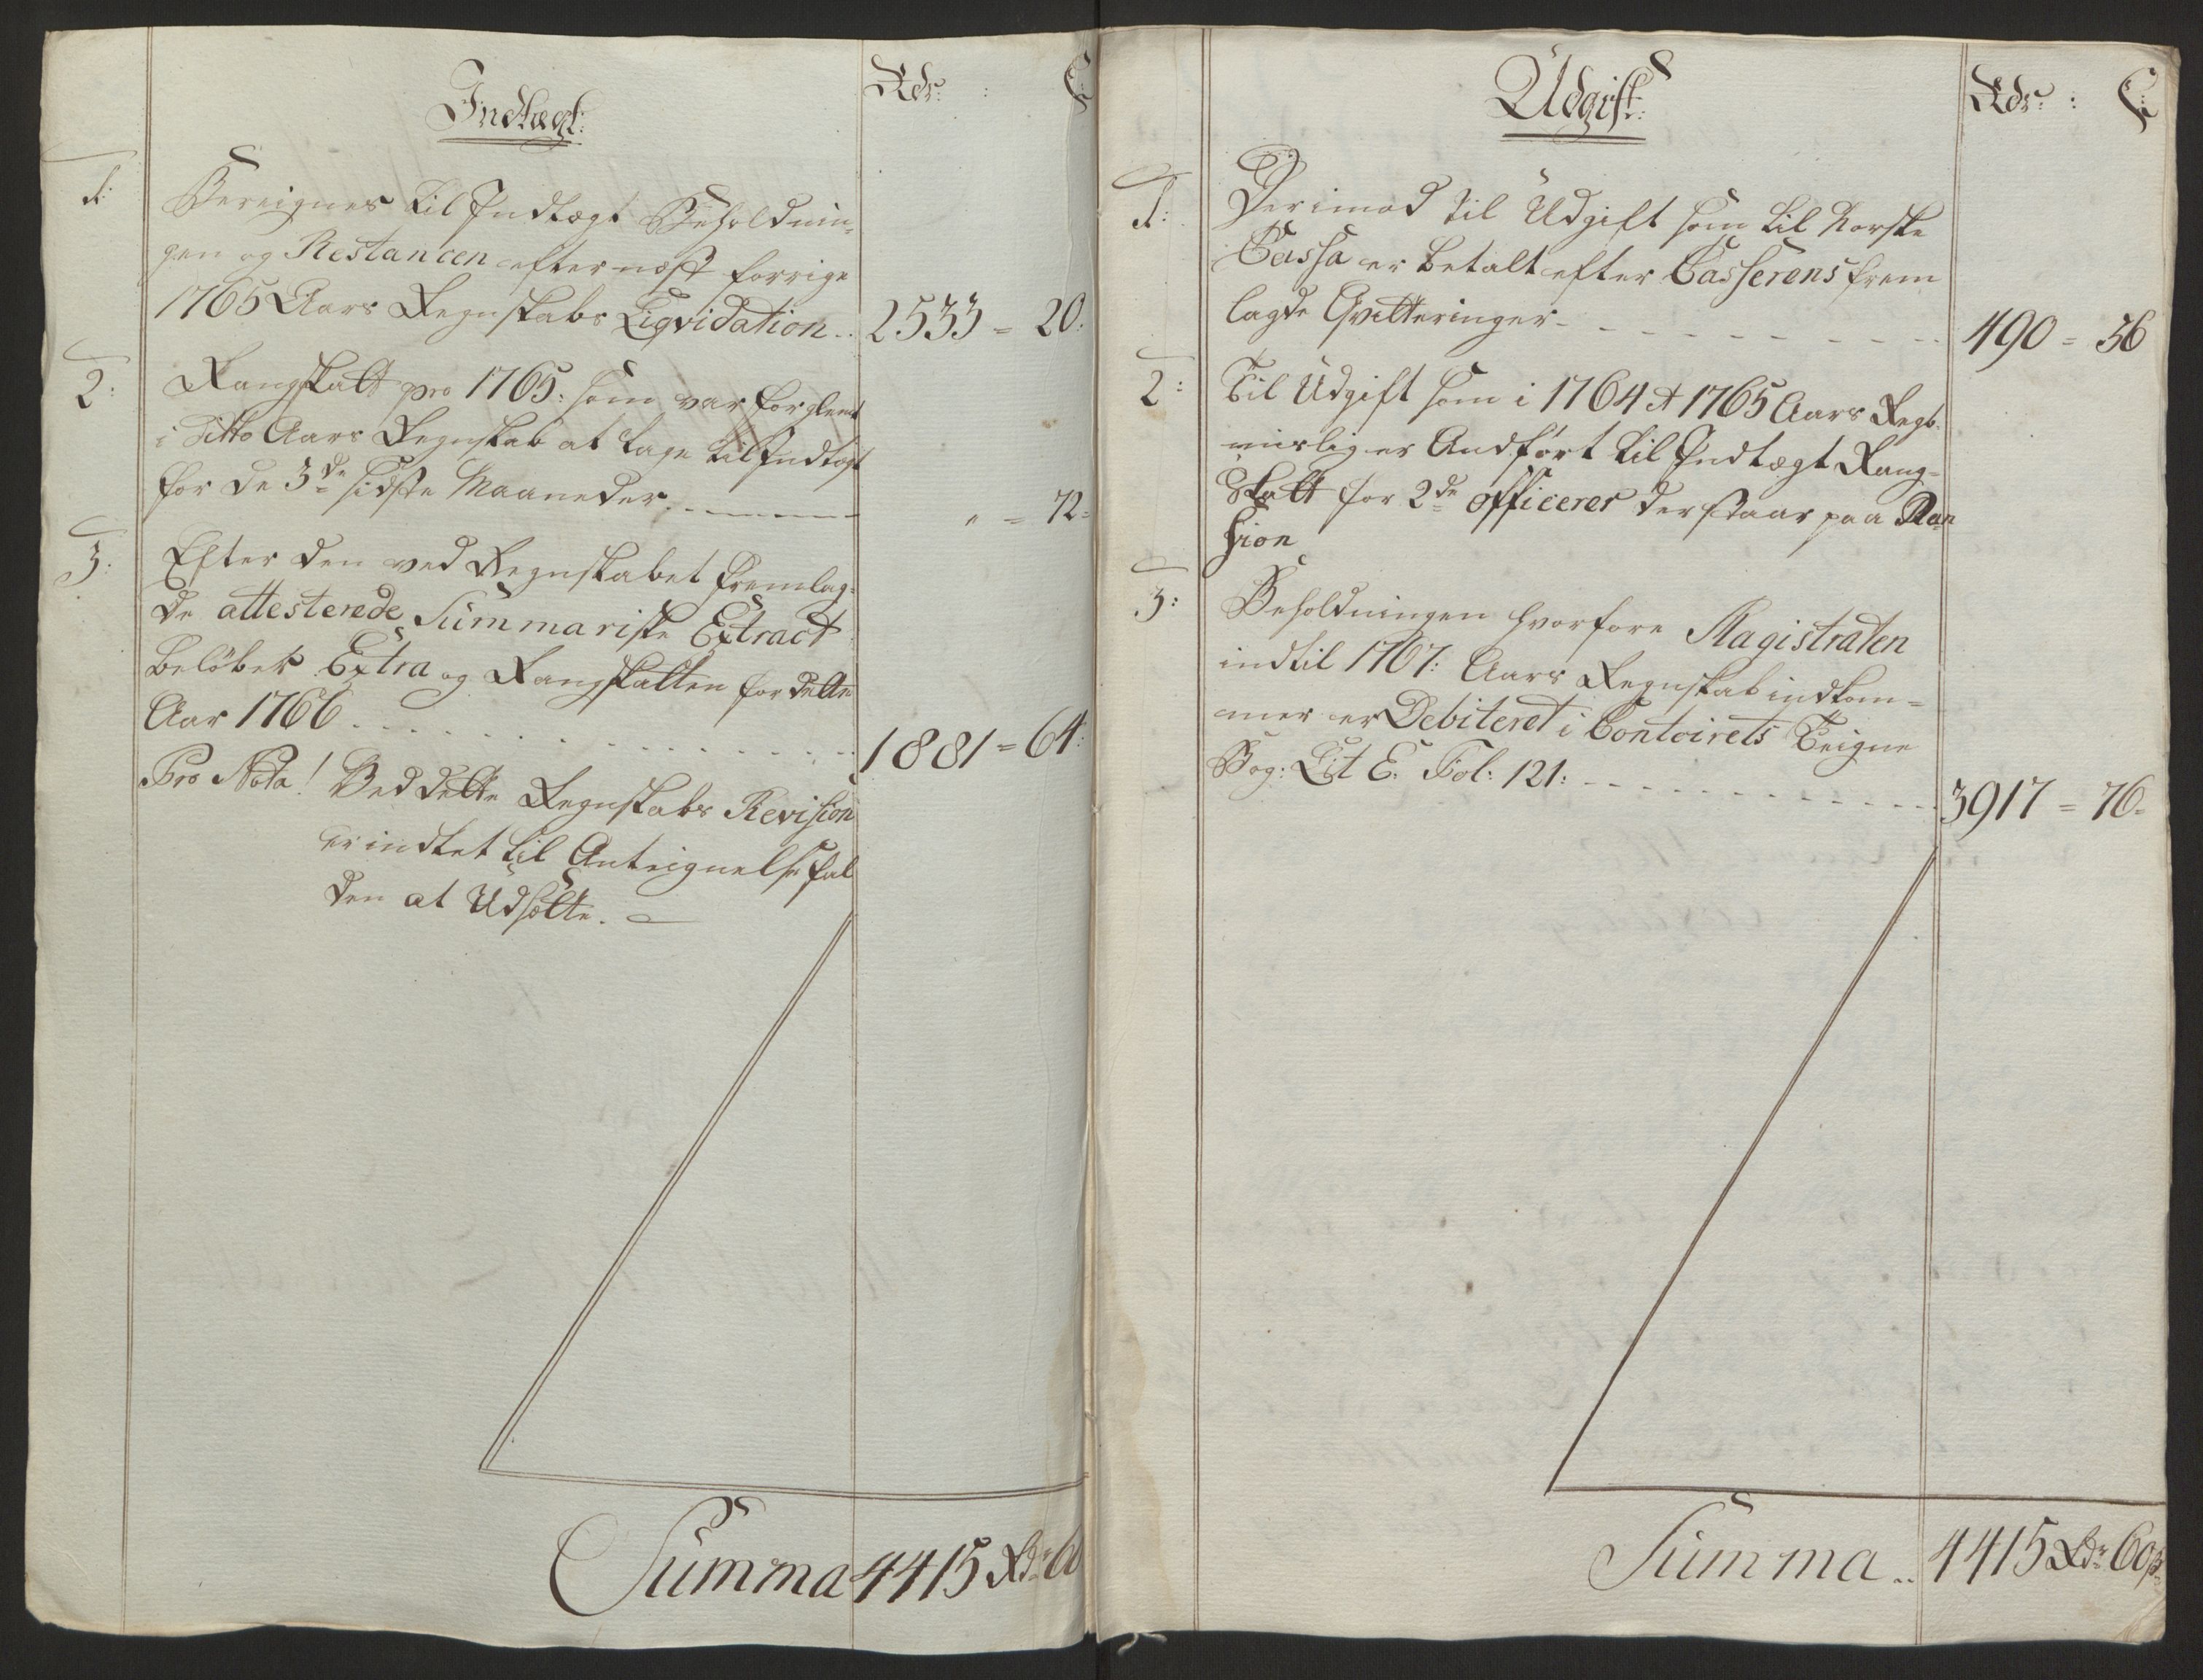 Indtægt:
Rdr: : ß
1: Bereignes til Indtægt Beholdnin-
gen og Restancen efter næst forrige
1765 Aars Regnskabs Liqvidation .. 2533 = 20:
2: Rangskatt pro 1765: som var forglemt
i ditto Aars Regnskab at tage til Indtægt
for de 3de sidste Maaneder. - - - - - " = 72:
3: Efter den ved Regnskabet fremlag-
de attesterede Summariske Extract
beløber Extra og Rangskatten for dette
Aar 1766 . . . . . . . . . . . 1881 = 64:
Pro Nota! Ved dette Regnskabs Revision
er indtet til Antegnelse fal
den at Udsætte. -
Summa 4415 Rdr 60
Udgift:
Rdr: : ß
1: Derimod til Udgift som til Norske
Cassa er betalt efter Casserens frem
lagde Qvitteringer - - - - - - - - 490 = 56
2: Til Udgift som i 1764 et 1765 Aars Regb.
mislig er Andført til Indtægt Rang-
Skatt for 2de officerer der staar paa Pen
sion 
3: Beholdningen hvorfore Magistraten
indtil 1767: Aars Regnskab indkom-
mer er Debiteret i Contoirets Teigne
Bog: Lit E. Fol: 121: - - - - - - - - 3917 = 76-
Summa .. 4415 Rdr 60 ß